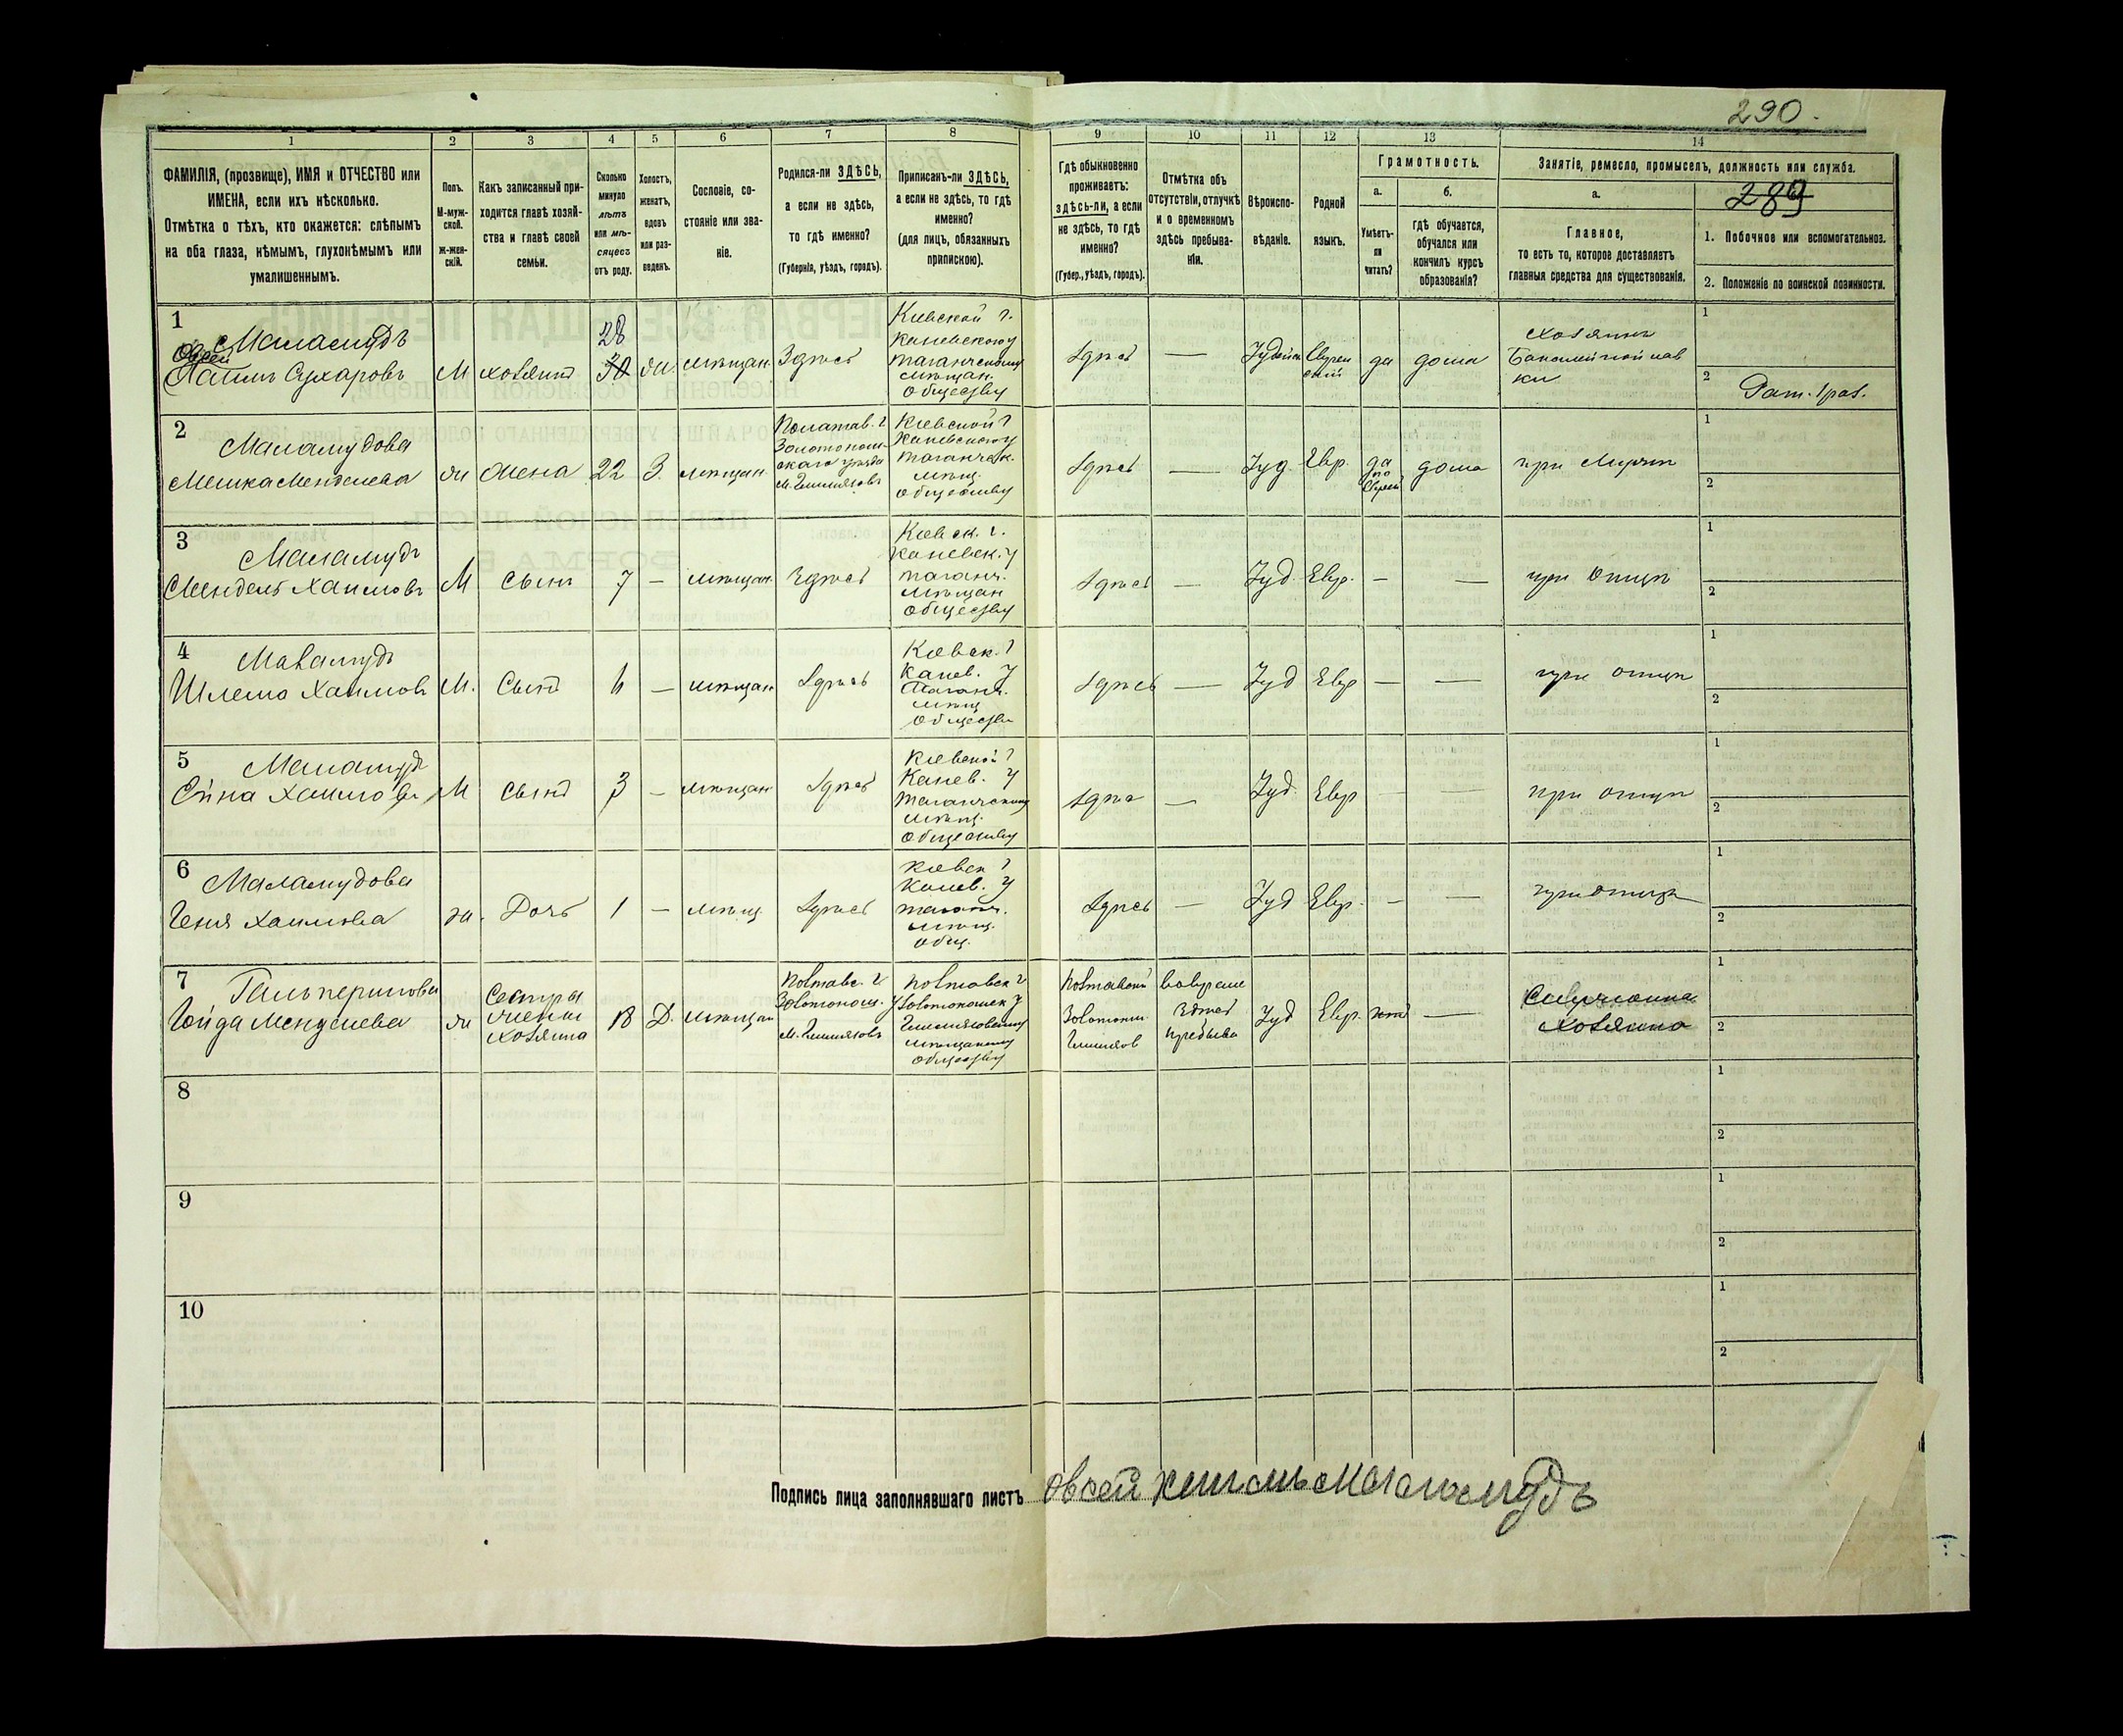 290.
1 2 3 4 5 6 7 8 9 10 11 12 13 14
ФАМИЛІЯ, (прозвище), ИМЯ и ОТЧЕСТВО или
ИМЕНА, если ихъ нѣсколько.
Отмѣтка о тѣхъ, кто окажется: слѣпымъ
на оба глаза, нѣмымъ, глухонѣмымъ или
умалишеннымъ.
Полъ.
М-муж-
ской.
ж-жен-
скій.
Какъ записанный при-
ходится главѣ хозяй-
ства и главѣ своей
семьи.
Сколько
минуло
лѣтъ
или мѣ-
сяцевъ
отъ роду.
Холостъ,
женатъ,
вдовъ
или раз-
веденъ.
Сословіе, со-
стояніе или зва-
ніе.
Родился-ли ЗДѢСЬ,
а если не здѣсь,
то гдѣ именно?
(Губернія, уѣздъ, городъ).
Приписанъ-ли ЗДѢСЬ,
а если не здѣсь, то гдѣ
именно?
(для лицъ, обязанныхъ
припискою).
Гдѣ обыкновенно
проживаетъ:
здѣсь-ли, а если
не здѣсь, то гдѣ
именно?
(Губер., уѣздъ, городъ).
Отмѣтка объ
отсутствіи, отлучкѣ
и о временномъ
здѣсь пребыва-
ніи.
Вѣроиспо-
вѣданіе.
Родной
языкъ.
Грамотность.
а.
Умѣетъ-
ли
читать?
б.
Гдѣ обучается,
обучался или
кончилъ курсъ
образованія?
Занятіе, ремесло, промыселъ, должность или служба.
а.
Главное,
то есть то, которое доставляетъ
главныя средства для существованія.
289
1. Побочное или вспомогательное.
2. Положеніе по воинской повинности.
1
Маламудъ
Овсей
Хаимъ Сухаровъ
М
хозяинъ
28
30
жн.
мѣщан.
Здѣсь
Кіевской г.
Каневскому
таганчскому
мѣщан.
обществу
Здѣсь
—
Іудейск
Еврей
ский
да
дома
Хозяинъ
Бакалейной лав
ки
1
2
Рат. 1 раз.
2
Маламудова
Мендслева
ж
жена
22
З.
мѣщан.
Полтав. г
Золотонош-
скаго уезда
Кіевской г
Каневскому
таганчск.
мѣщ.
обществу
Здѣсь
—
Іуд.
Евр.
да
по
Еврей
дома
при мужѣ
1
2
3
Маламудъ
Мендель Хаимовъ
М
сынъ
7
—
мѣщан.
Здѣсь
Кіевск. г.
Каневск. у
таганч.
мѣщан
обществу
Здѣсь
—
Іуд.
Евр.
—
—
при отцѣ
1
2
4
Маламудъ
Шлемо Хаимовъ
М.
Сынъ
—
мѣщан
Здѣсь
Кіевск. г
Канев. у
Таганч.
мѣщ
обществу
Здѣсь
—
Іуд
Евр
—
—
при отцѣ
1
2
5
Маламудъ
Хаимовъ
М
сынъ
3
—
мѣщан
Здѣсь
Кіевской г
Канев. у
таганчскому
мѣщ.
обществу
Здѣсь
—
Іуд.
Евр
при отцѣ
1
2
6
Маламудова
Геня Хаимова
ж.
Дочь
1
—
мѣщ
Здѣсь
Кіевск г
Канев. у
таганч.
мѣщ.
общ.
Здѣсь
—
Іуд
Евр.
—
—
при отцѣ
1
2
7
Гальперинова
Гойда Менделева
ж
Сестра
жены
хозяина
18
Д.
мѣщан
Полтавс. г
Золотонош. у
Полтавск г
Золотоношск у
мѣщанскому
обществу
Полтавской
Золотонош
вовремен
Здѣсь
пребыва
Іуд
Евр.
нѣт
—
хозяина
1
2
8
1
2
9
1
2
10
1
2
Подпись лица заполнявшаго листъ Овсей Хаимъ Маламудъ